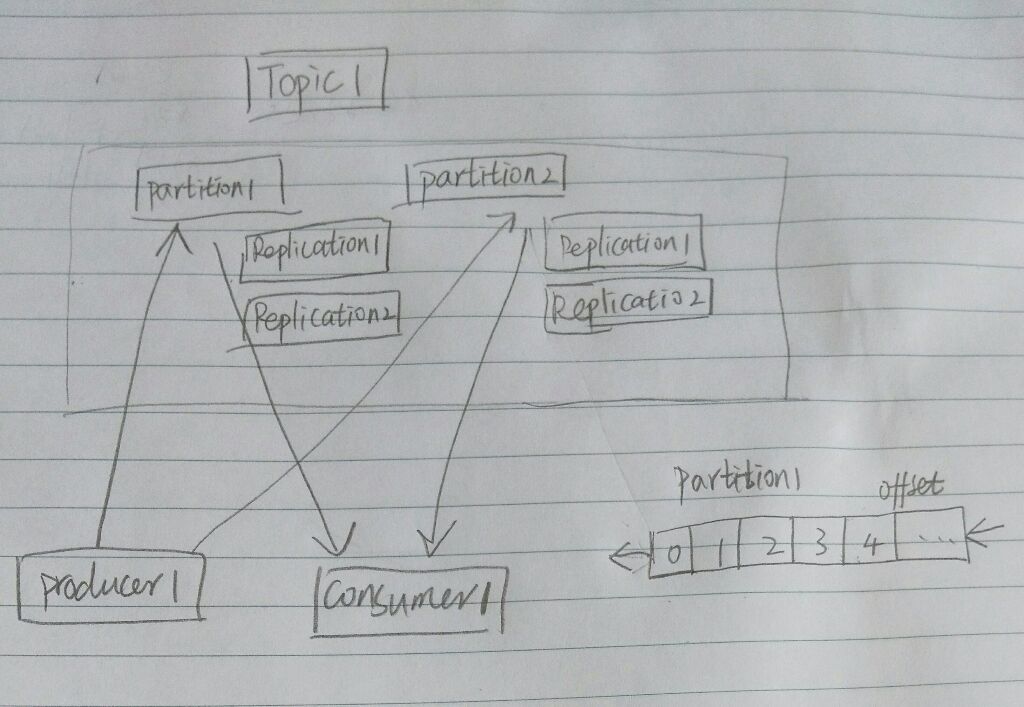 Topic1
partition1
partition2
Replication1
Replication1
Replication2
Replicatio2
partition1
offset
0 1 2 3 4 ...
producer1
consumer1